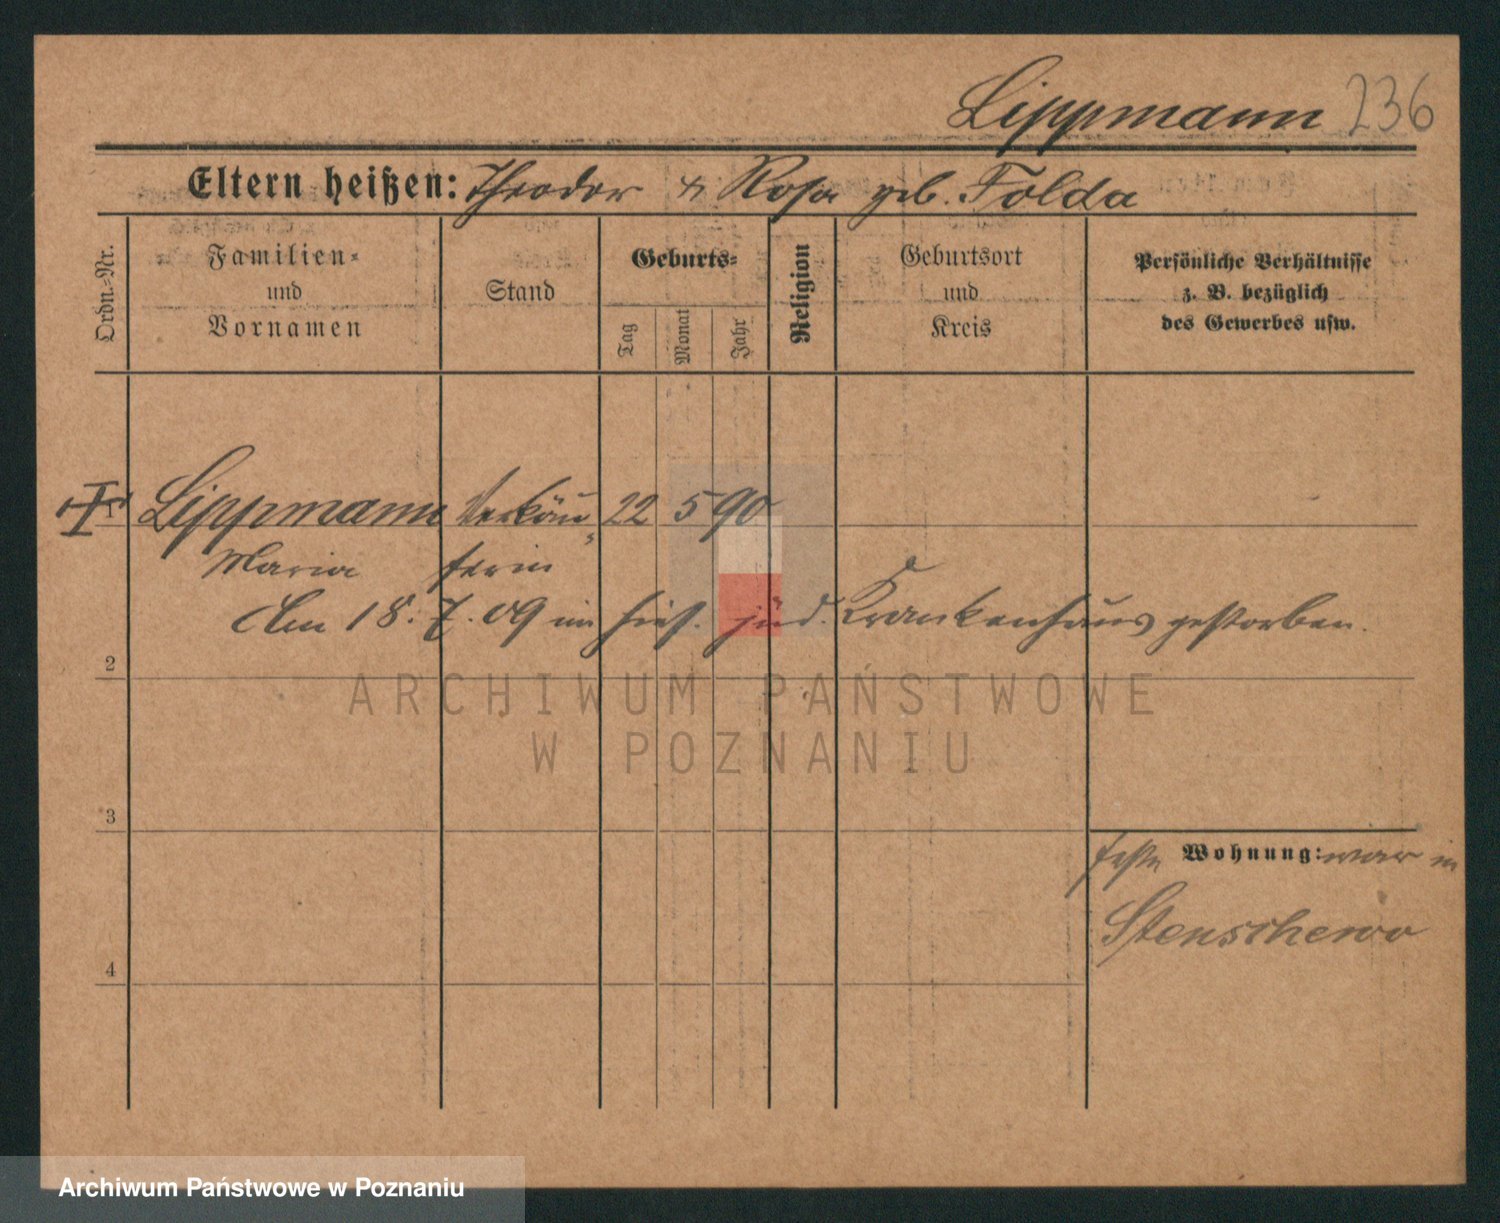 Lippmann 236
Eltern heißen: Theodor & Rosa geb. Folda
Ordn.-Nr.
Familien-
und
Vornamen
Stand
Geburts-
Tag
Monat
Jahr
Religion
Geburtsort
und
Kreis
Persönliche Verhältnisse
z. B. bezüglich
des Gewerbes usw.
1 Lippmann Verkäu- 22 5 90
Maria ferin
Am 18. 7. 09 im hies. jüd. Krankenhaus gestorben.
2
ARCHIWUM PAŃSTWOWE
W POZNANIU
3
feste Wohnung: war in
Stenschewo
4
Archiwum Państwowe w Poznaniu